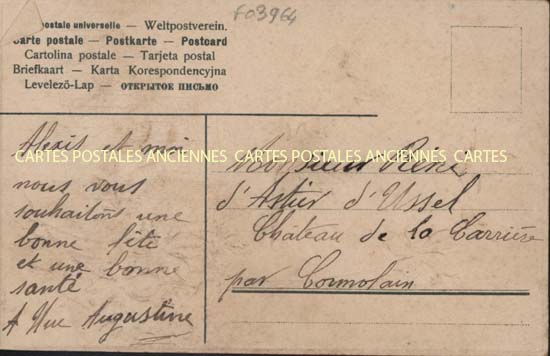 F03964
postale universelle — Weltpostverein.
Carte postale — Postkarte — Postcard
Cartolina postale — Tarjeta postal
Briefkaart — Karta Korespondencyjna
Levelező-Lap — ОТКРЫТОЕ ПИСЬМО
CARTES POSTALES ANCIENNES CARTES POSTALES ANCIENNES CARTES
Alexis et moi
nous vous
souhaitons une
bonne fête
et une bonne
santé
Augustine
Monsieur René
d'Astier d'Ussel
Chateau de la Carrière
par Cormolain